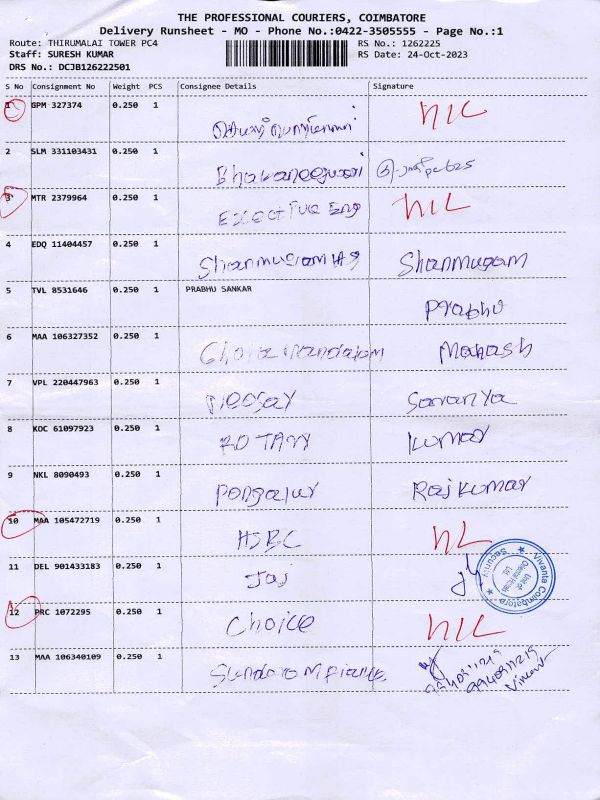 THE PROFESSIONAL COURIERS, COIMBATORE
Delivery Runsheet - MO - Phone No.:0422-3505555 - Page No.:1
Route: THIRUMALAI TOWER PC4 RS No.: 1262225
Staff: SURESH KUMAR RS Date: 24-Oct-2023
DRS No.: DCJB126222501
S No Consignment No Weight PCS Consignee Details Signature
1 GPM 327374 0.250 1 NIL
2 SLM 331103431 0.250 1 Bhavaneeswari
3 MTR 2379964 0.250 1 Exective Eng NIL
4 EDQ 11404457 0.250 1 Shanmugam Shanmugam
5 TVL 8531646 0.250 1 PRABHU SANKAR Prabhu
6 MAA 106327352 0.250 1 Cholamandalam Mahash
7 VPL 220447963 0.250 1 Saranya
8 KOC 61097923 0.250 1 ROTARY Kumar
9 NKL 8090493 0.250 1 Pongalur Rajkumar
10 MAA 105472719 0.250 1 HSBC NL
11 DEL 901433183 0.250 1 Jai
Vivanta Coimbatore
Security
Unit of
Oriental Hotels
Ltd.
12 PRC 1072295 0.250 1 Choice NIL
13 MAA 106340109 0.250 1 Vincent